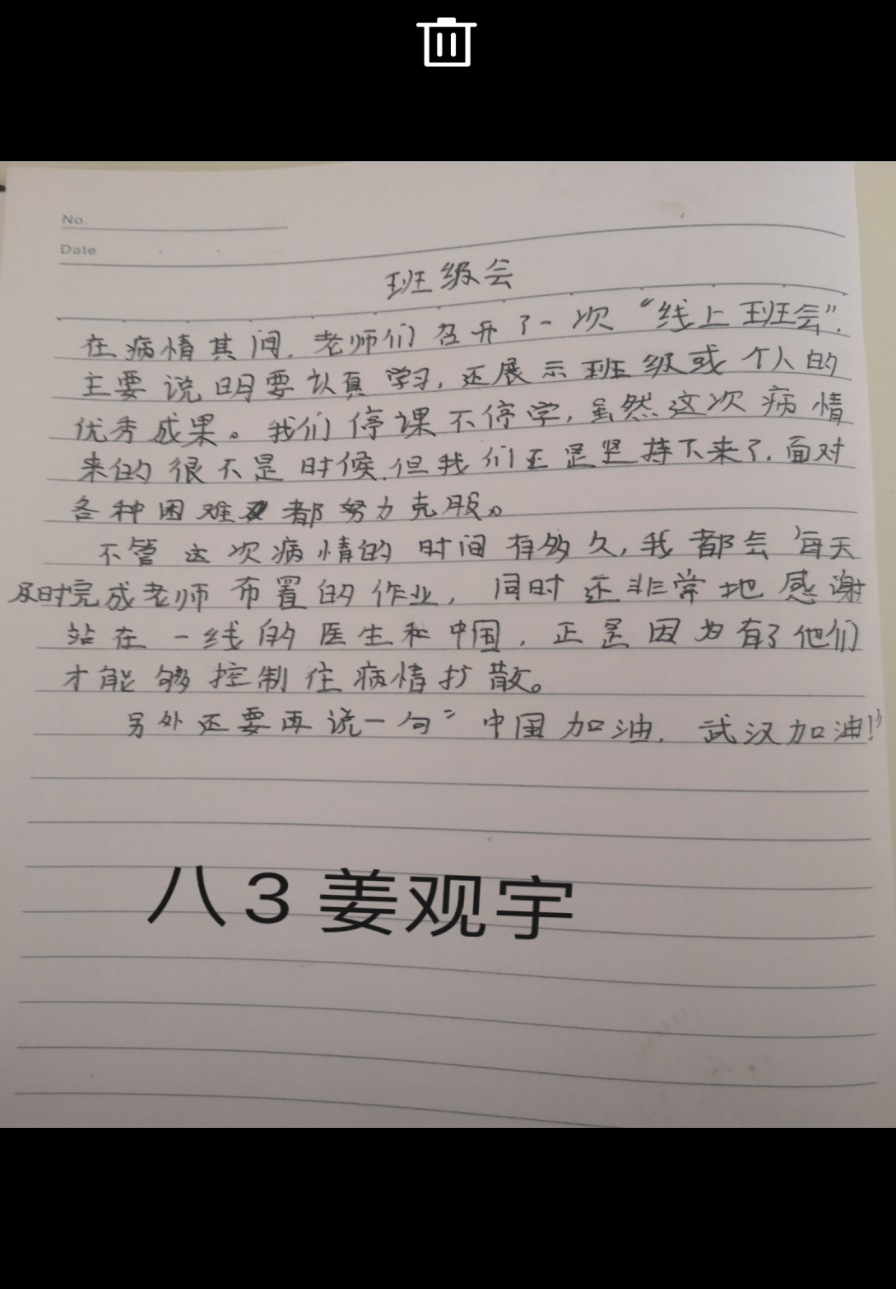 No.
Date
班级会
在病情其间，老师们召开了一次“线上班会”.
主要说明要认真学习，还展示班级或个人的
优秀成果。我们停课不停学，虽然这次病情
来的很不是时候，但我们还是坚持下来了，面对
各种困难都努力克服。
不管这次病情的时间有多久，我都会每天
及时完成老师布置的作业，同时还非常地感谢
站在一线的医生和中国，正是因为有了他们
才能够控制住病情扩散。
另外还要再说一句“中国加油，武汉加油!”
八3姜观宇